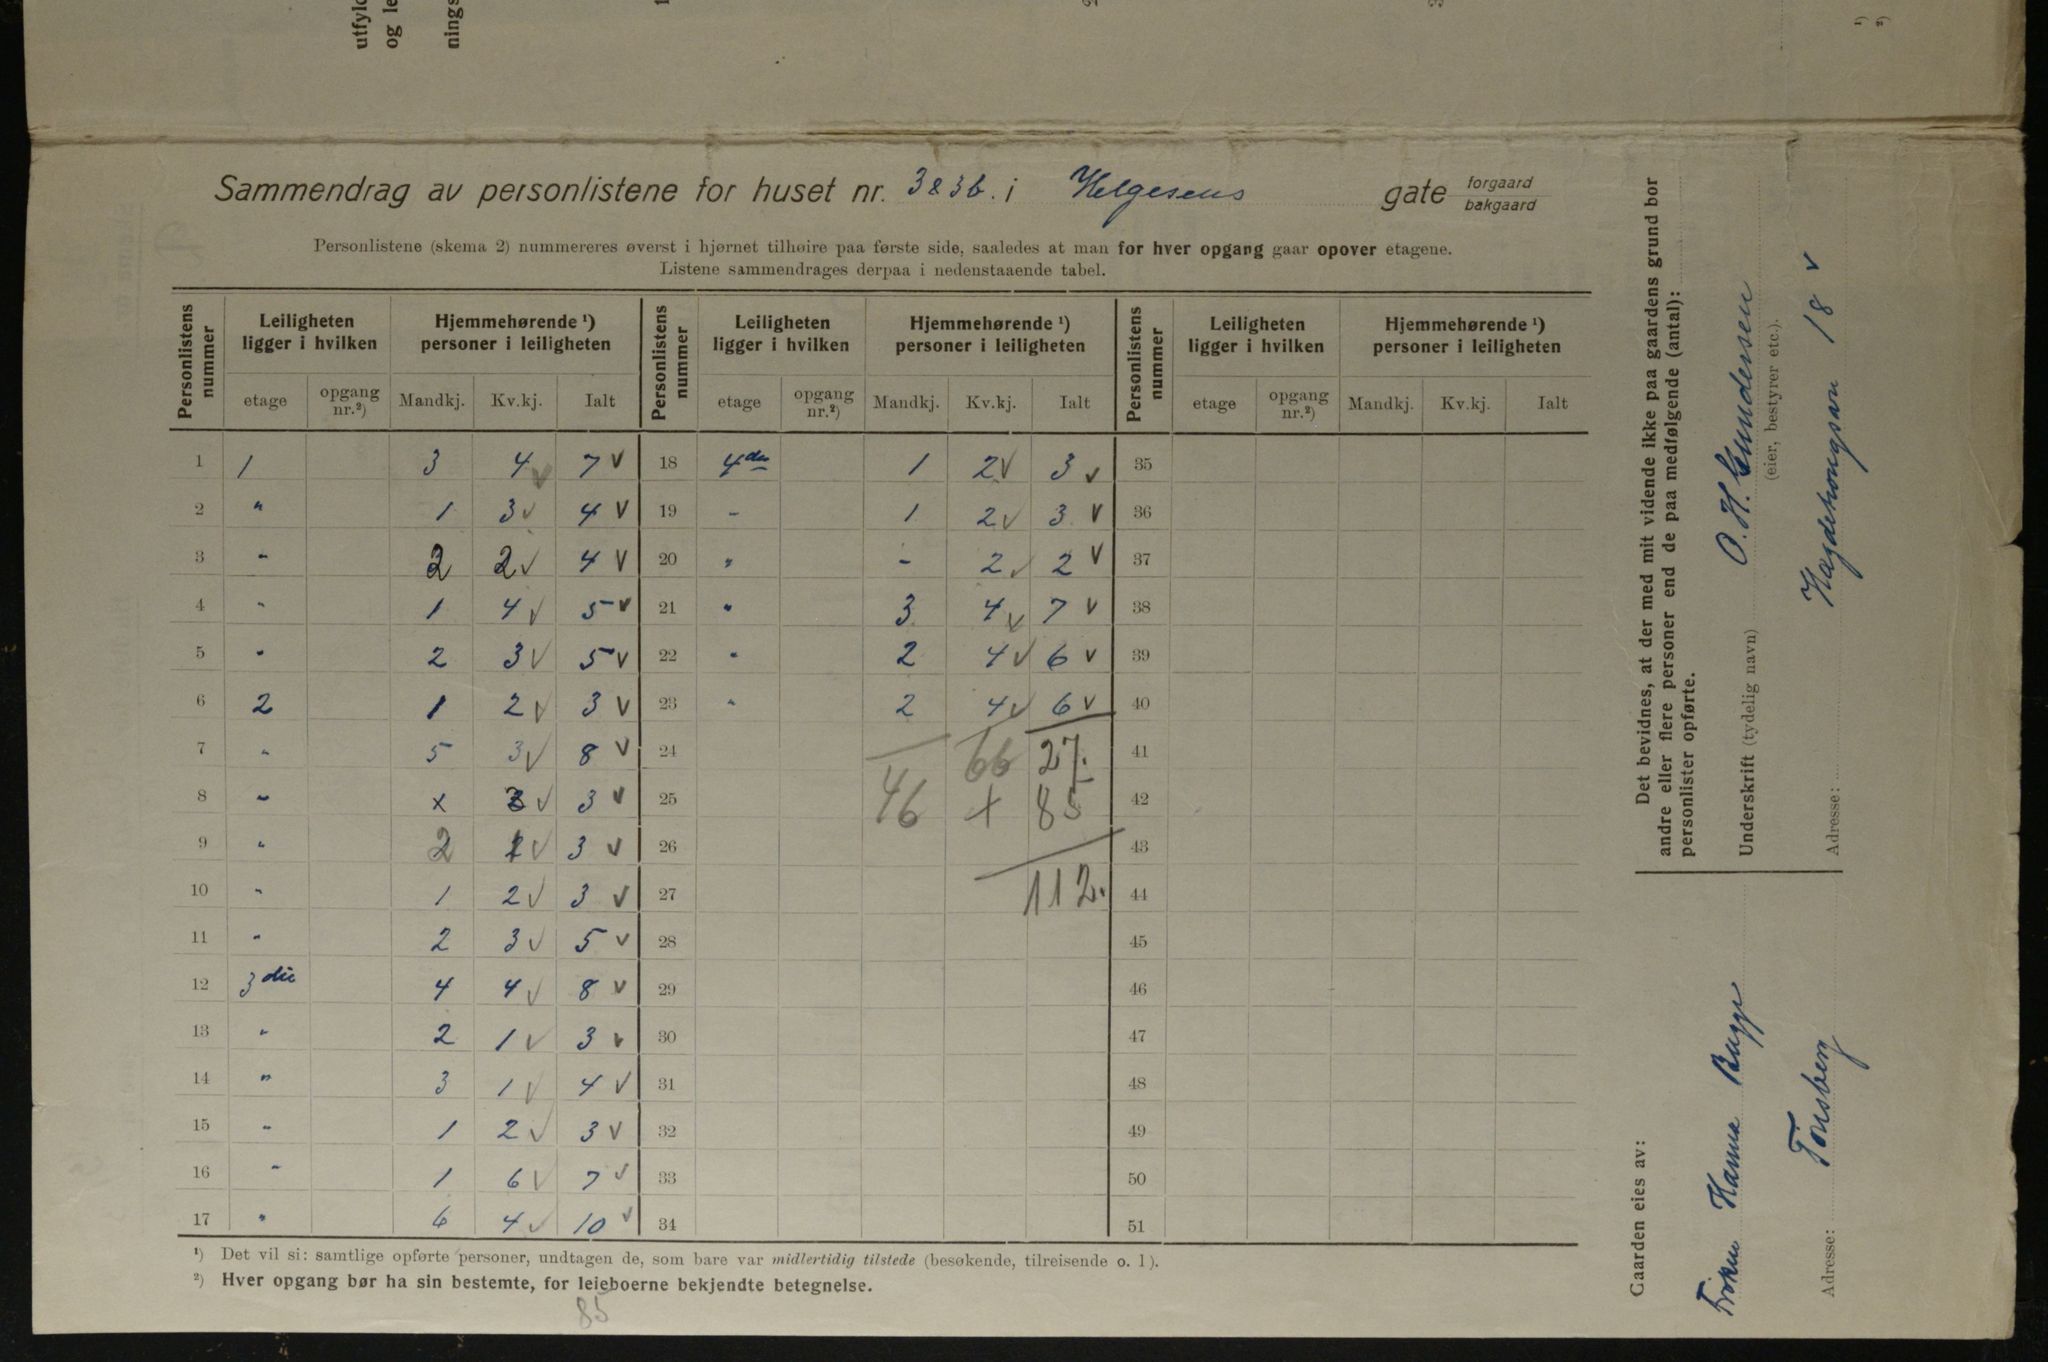 Sammendrag av personlistene for huset nr. 3 & 3b. i Helgesens gate forgaard bakgaard
Personlistene (skema 2) nummereres øverst i hjørnet tilhøire paa første side, saaledes at man for hver opgang gaar opover etagene.
Listene sammendrages derpaa i nedenstaaende tabel.
Personlistens nummer | Leiligheten ligger i hvilken | Hjemmehørende ¹) personer i leiligheten | Personlistens nummer | Leiligheten ligger i hvilken | Hjemmehørende ¹) personer i leiligheten | Personlistens nummer | Leiligheten ligger i hvilken | Hjemmehørende ¹) personer i leiligheten
etage | opgang nr.²) | Mandkj. | Kv.kj. | Ialt | etage | opgang nr.²) | Mandkj. | Kv.kj. | Ialt | etage | opgang nr.²) | Mandkj. | Kv.kj. | Ialt
1 | 1 | 3 | 4 v | 7 v | 18 | 4de | 1 | 2 v | 3 v | 35
2 | " | 1 | 3 v | 4 v | 19 | - | 1 | 2 v | 3 v | 36
3 | " | 2 | 2 v | 4 v | 20 | " | - | 2 v | 2 v | 37
4 | " | 1 | 4 v | 5 v | 21 | " | 3 | 4 v | 7 v | 38
5 | " | 2 | 3 v | 5 v | 22 | " | 2 | 4 v | 6 v | 39
6 | 2 | 1 | 2 v | 3 v | 23 | " | 2 | 4 v | 6 v | 40
7 | " | 5 | 3 v | 8 v | 24 | 66 | 27. | 41
8 | " | x | 3 v | 3 v | 25 | 46 | + | 85 | 42
9 | " | 2 | 1 v | 3 v | 26 | 43
10 | " | 1 | 2 v | 3 v | 27 | 112. | 44
11 | " | 2 | 3 v | 5 v | 28 | 45
12 | 3die | 4 | 4 v | 8 v | 29 | 46
13 | " | 2 | 1 v | 3 v | 30 | 47
14 | " | 3 | 1 v | 4 v | 31 | 48
15 | " | 1 | 2 v | 3 v | 32 | 49
16 | " | 1 | 6 v | 7 v | 33 | 50
17 | " | 6 | 4 v | 10 v | 34 | 51
¹) Det vil si: samtlige opførte personer, undtagen de, som bare var midlertidig tilstede (besøkende, tilreisende o. l).
²) Hver opgang bør ha sin bestemte, for leieboerne bekjendte betegnelse.
85
Det bevidnes, at der med mit vidende ikke paa gaardens grund bor
andre eller flere personer end de paa medfølgende (antal):
personlister opførte.
Underskrift (tydelig navn) O. H. Gundersen
(eier, bestyrer etc.).
Adresse: 18 v
Gaarden eies av:
Frøken Hanna Bugge
Adresse: Tønsberg
utfyld
og le
nings
¹)
²)